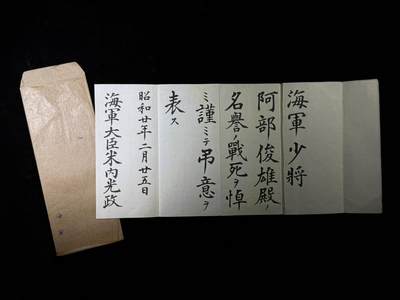 海軍少將
阿部俊雄殿ノ
名譽ノ戰死ヲ悼
ミ謹ミテ弔意ヲ
表ス
昭和廿年二月廿五日
海軍大臣米内光政